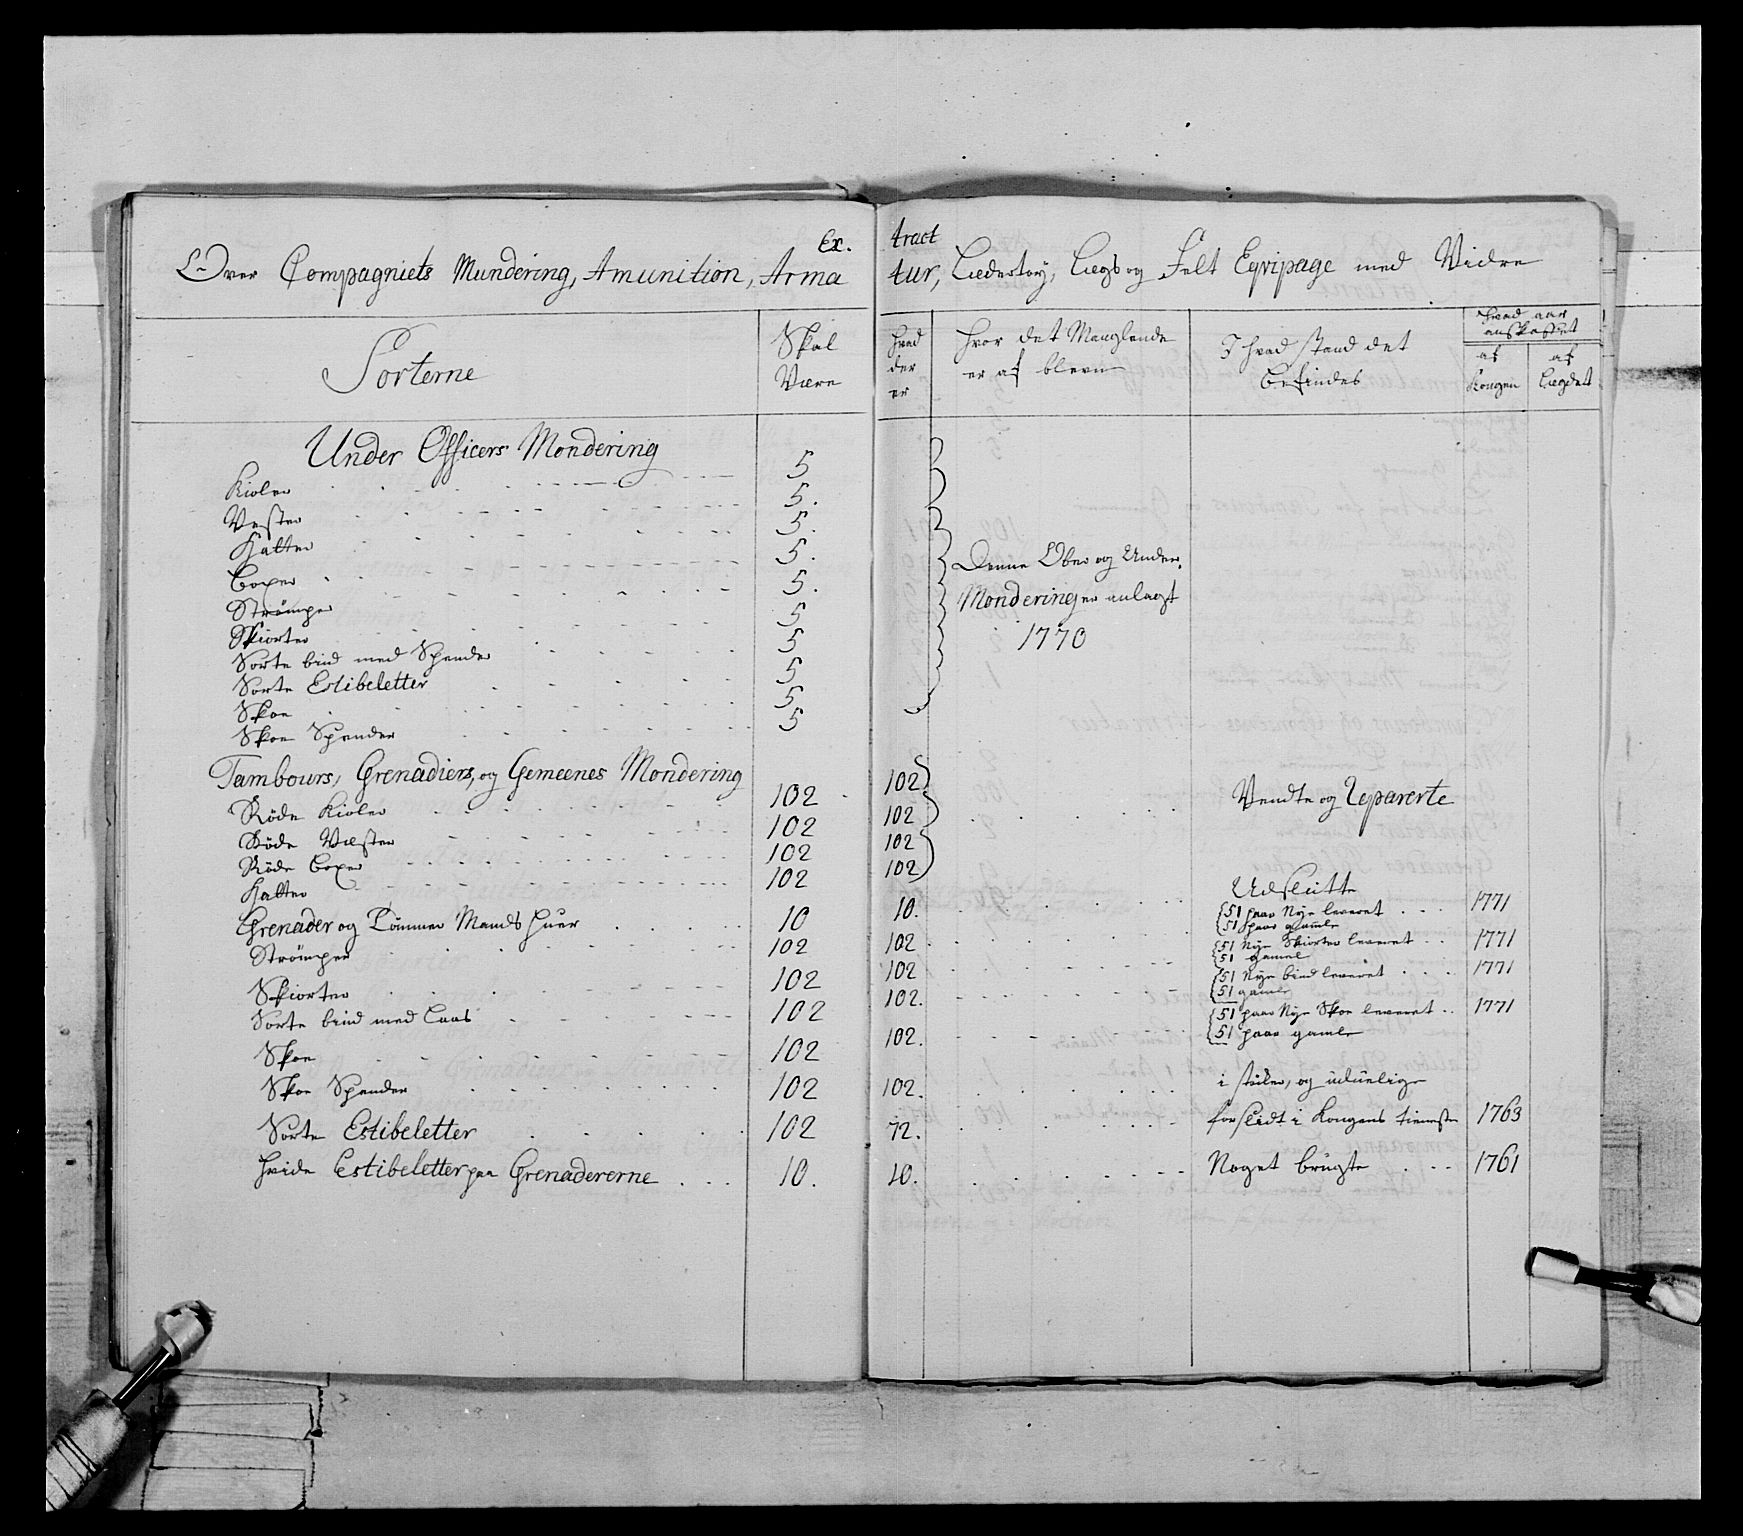 Extract
Over Compagniets Mundering, Amunition, Armatur, Lædertøy, Lægs og Felt Eqvipage med Vidre
Sorterne
Skal Være
hvad der er
hvor det Manglende er af blevn
I hvad stand det befindes
hvad aar anskaffet
af Kongen
af Lægdet
Under Officers Mondering
Kioler 5
Vester 5.
Hatter 5.
Boxer 5.
Strömper 5.
Skiorter 5
Sorte bind med Spender 5
Sorte Estibeletter 5
Skoe 5
Skoe Spender 5
Denne Ober og Under
Mondering er anlagt
1770
Tambours, Grenadiers, og Gemeenes Mondering
Röde Kioler 102 102
Röde Vester 102 102 Vendte og Reparerte
Röde Boxer 102 102
Hatter 102 102
Grenader og Tömmer Mands Huer 10 10. Udslitte
Strömper 102 102 51 paar Nye leveret 1771
51 paar gamle
Skiorter 102 102 51 Nye Skiorter leveret 1771
51 gamel
Sorte bind med Laas 102 102. 51 Nye bind leveret 1771
51 gamle
Skoe 102 102. 51 paar Nye Skoe leveret 1771
51 paar gamle
Skoe Spender 102 102. i stöker, og udüelige
Sorte Estibeletter 102 72. forslidt i Kongens tieneste 1763
hvide Estibeletter paa Grenadererne 10. 10. Noget brügte 1761